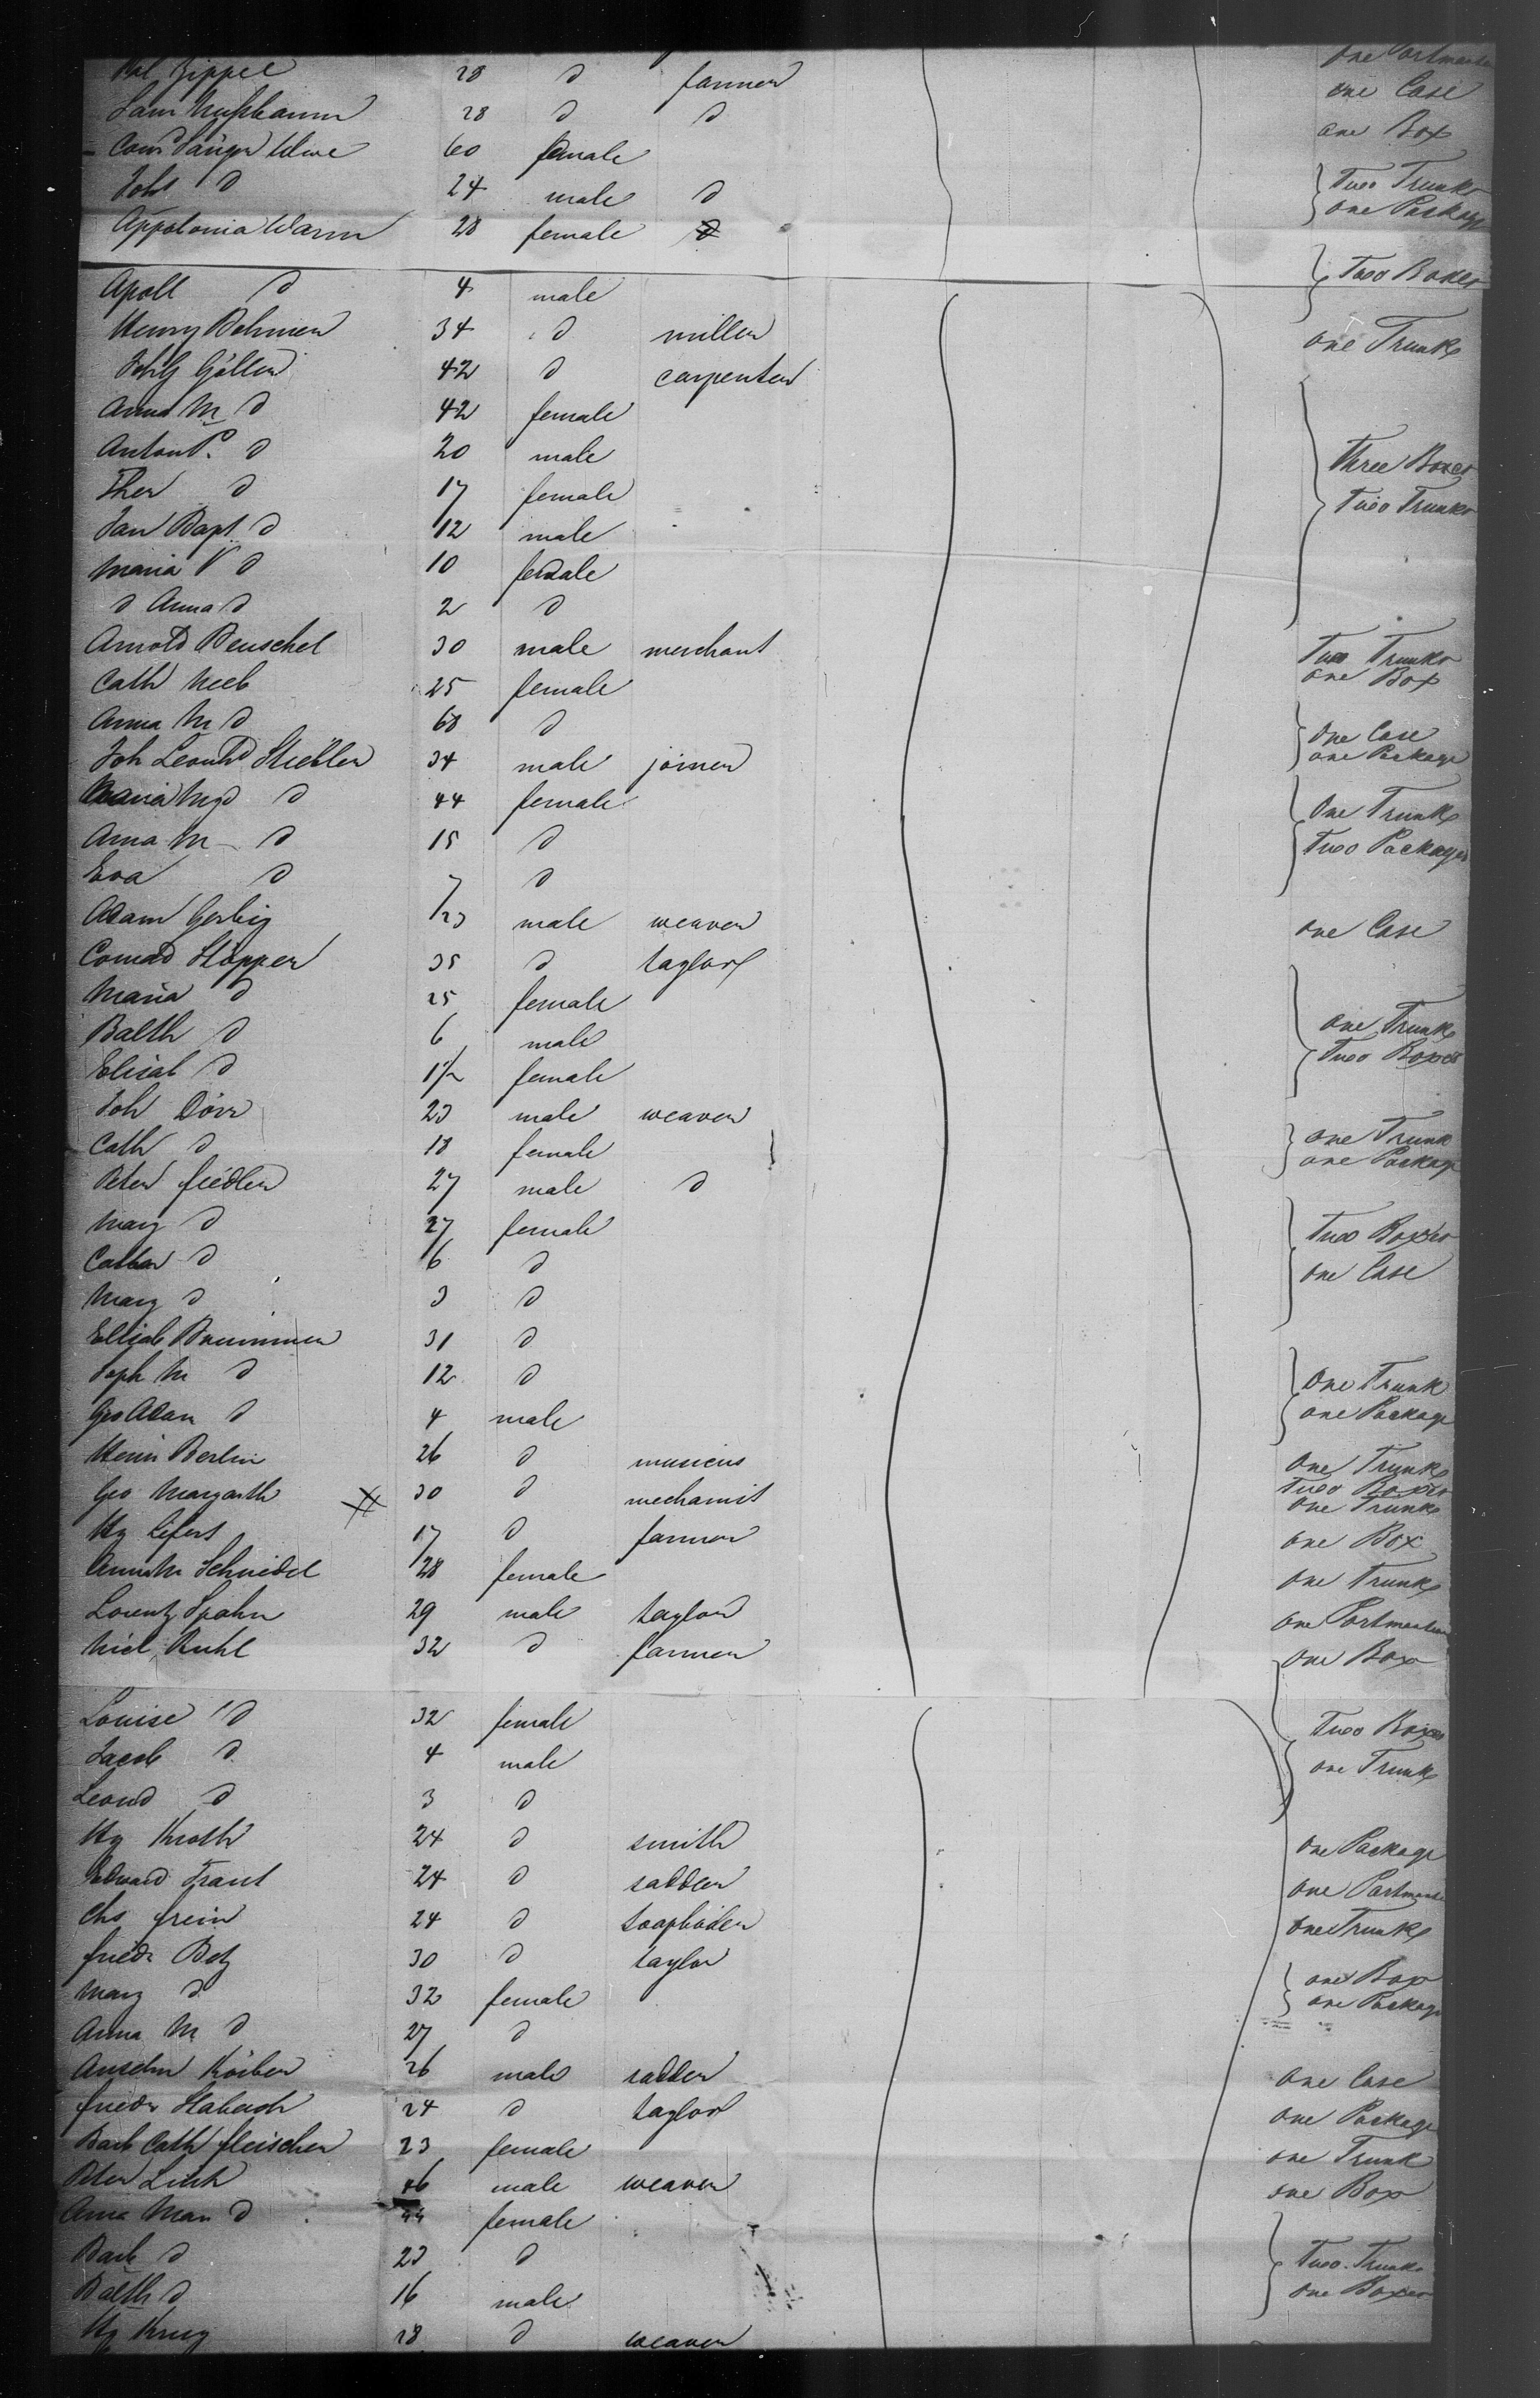 Zippel 28 d farmer one Portmanteau
Sam Nußbaum 28 d d one Case
60 female one Box
Joh d 24 male d Two Trunks
Appolonia Warm 28 female d one Package
Apoll d 4 male Two Boxes
Henry Behmer 34 d miller one Trunk
Göller 42 d carpenter
Anna M d 42 female
Anton P. d 20 male Three Boxes
Ther d 17 female Two Trunks
Jan Bapt d 12 male
Maria V d 10 female
d Anna d 2 d
Arnold Beuschel 30 male merchant Two Trunks
Cath Neeb 25 female one Box
Anna M d 68 d one Case
Joh Leonhd 34 male joiner one Package
Maria Mgd d 44 female One Trunk
Anna M d 15 d Two Packages
Eva d 7 d
Adam Gerbig 23 male weaver one Case
Conrad Stopper 35 d taylor
Maria d 25 female
Balth d 6 male one Trunk
Elisab d 1½ female Two Boxes
Joh Dörr 23 male weaver
Cath d 18 female one Trunk
Peter Fiedler 27 male d one Package
Marg d 27 female Two Boxes
Cathar d 6 d one Case
Marg d 3 d
Elisab Brummer 31 d
Soph M d 12 d One Trunk
Geo Adam d 4 male one Package
Henri Berlin 26 d musicus One Trunk
Geo Margarth 30 d mechanist Two Boxes
one Trunk
Hy Lifert 17 d farmer one Box
Anna M Schneidel 28 female one Trunk
Lorentz Spahn 29 male taylor one Portmanteau
Nicl Ruhl 32 d farmer One Box
Louise d 32 female Two Boxes
Jacob d 4 male one Trunk
Leond d 3 d
Hy Kroth 24 d smith One Package
Edward Traut 24 d sadler one Portmanteau
Chs Frein 24 d soapboiler One Trunk
Friedr Betz 30 d taylor one Box
Marg d 32 female one Package
Anna M d 27 d
Anselm Körber 26 male sadler One Case
Friedr 24 d taylor One Package
Barb Cath Fleischer 23 female one Trunk
Peter Link 46 male weaver one Box
Anna Mar d 44 female
Barb d 23 d Two Trunks
Balth d 16 male one Boxes
Hy Krug 28 d weaver